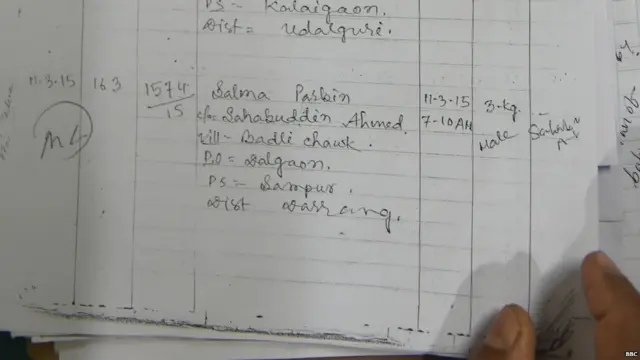 PS :- Kalaigaon.
Dist = Udalguri.
11-3-15 163 1574/15 Salma Parbin 11-3-15 3-kg.
c/o- Sahabuddin Ahmed. 7-10 AM Male
Vill - Badli chawk.
PO = Dalgaon.
PS :- Sampur.
Dist Darrang.
BBC